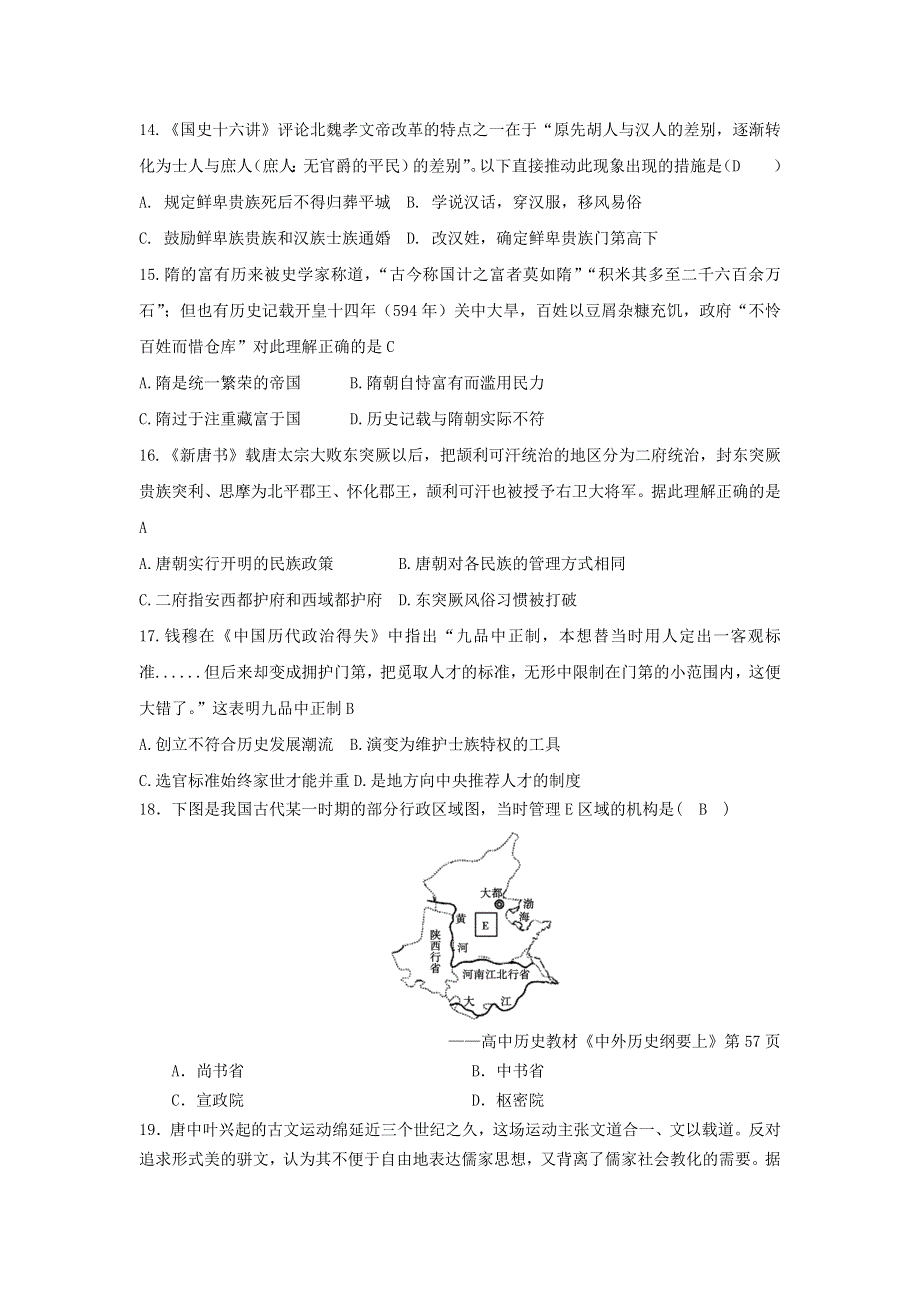 14.《国史十六讲》评论北魏孝文帝改革的特点之一在于“原先胡人与汉人的差别，逐渐转
化为士人与庶人（庶人：无官爵的平民）的差别”。以下直接推动此现象出现的措施是（D　　）
A. 规定鲜卑贵族死后不得归葬平城　B. 学说汉话，穿汉服，移风易俗
C. 鼓励鲜卑族贵族和汉族士族通婚　D. 改汉姓，确定鲜卑贵族门第高下
15.隋的富有历来被史学家称道，“古今称国计之富者莫如隋”“积米其多至二千六百余万
石”；但也有历史记载开皇十四年（594年）关中大旱，百姓以豆屑杂糠充饥，政府“不怜
百姓而惜仓库”对此理解正确的是C
A.隋是统一繁荣的帝国　　　B.隋朝自恃富有而滥用民力
C.隋过于注重藏富于国　　　D.历史记载与隋朝实际不符
16.《新唐书》载唐太宗大败东突厥以后，把颉利可汗统治的地区分为二府统治，封东突厥
贵族突利、思摩为北平郡王、怀化郡王，颉利可汗也被授予右卫大将军。据此理解正确的是
A
A.唐朝实行开明的民族政策　　　　B.唐朝对各民族的管理方式相同
C.二府指安西都护府和西域都护府　D.东突厥风俗习惯被打破
17.钱穆在《中国历代政治得失》中指出“九品中正制，本想替当时用人定出一客观标
准......但后来却变成拥护门第，把觅取人才的标准，无形中限制在门第的小范围内，这便
大错了。”这表明九品中正制B
A.创立不符合历史发展潮流　B.演变为维护士族特权的工具
C.选官标准始终家世才能并重 D.是地方向中央推荐人才的制度
18．下图是我国古代某一时期的部分行政区域图，当时管理E区域的机构是(　B　)
大都
渤海
黄河
E
陕西行省
河南江北行省
大江
——高中历史教材《中外历史纲要上》第57页
A．尚书省　　　　　　　　B．中书省
C．宣政院　　　　　　　　D．枢密院
19．唐中叶兴起的古文运动绵延近三个世纪之久，这场运动主张文道合一、文以载道。反对
追求形式美的骈文，认为其不便于自由地表达儒家思想，又背离了儒家社会教化的需要。据